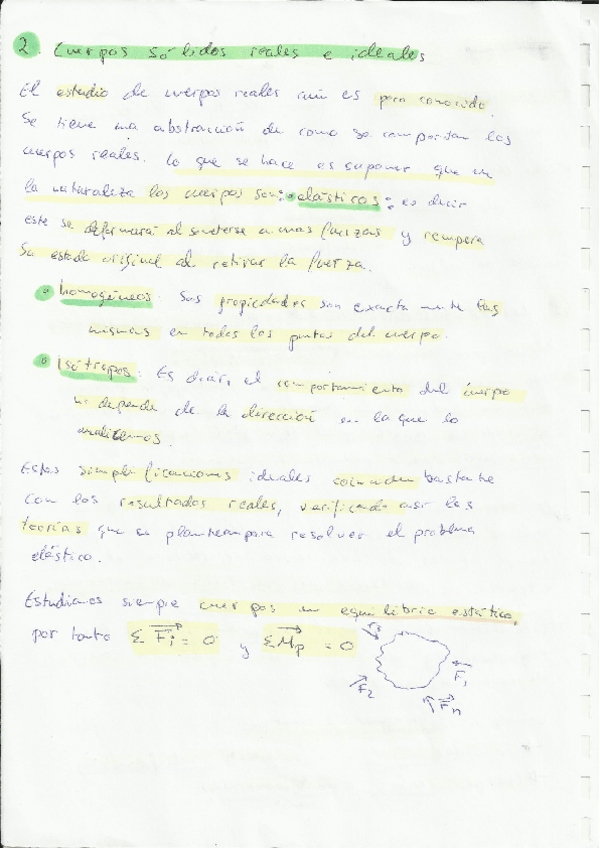 2. Cuerpos sólidos reales e ideales
El estudio de cuerpos reales aún es poco conocido.
Se tiene una abstracción de como se comportan los
cuerpos reales. Lo que se hace es suponer que en
la naturaleza los cuerpos son: • elásticos: es decir
este se deformará al someterse a unas fuerzas y recupera
su estado original al retirar la fuerza.
• homogéneos: Sus propiedades son exactamente las
mismas en todos los puntos del cuerpo.
• Isótropos: Es decir, el comportamiento del cuerpo
no depende de la dirección en la que lo
analicemos.
Estas simplificaciones ideales coinciden bastante
con los resultados reales, verificando así las
teorías que se plantean para resolver el problema
elástico.
Estudiamos siempre cuerpos en equilibrio estático,
por tanto Σ Fi = 0 y Σ Mp = 0
F3
F1
F2
Fn